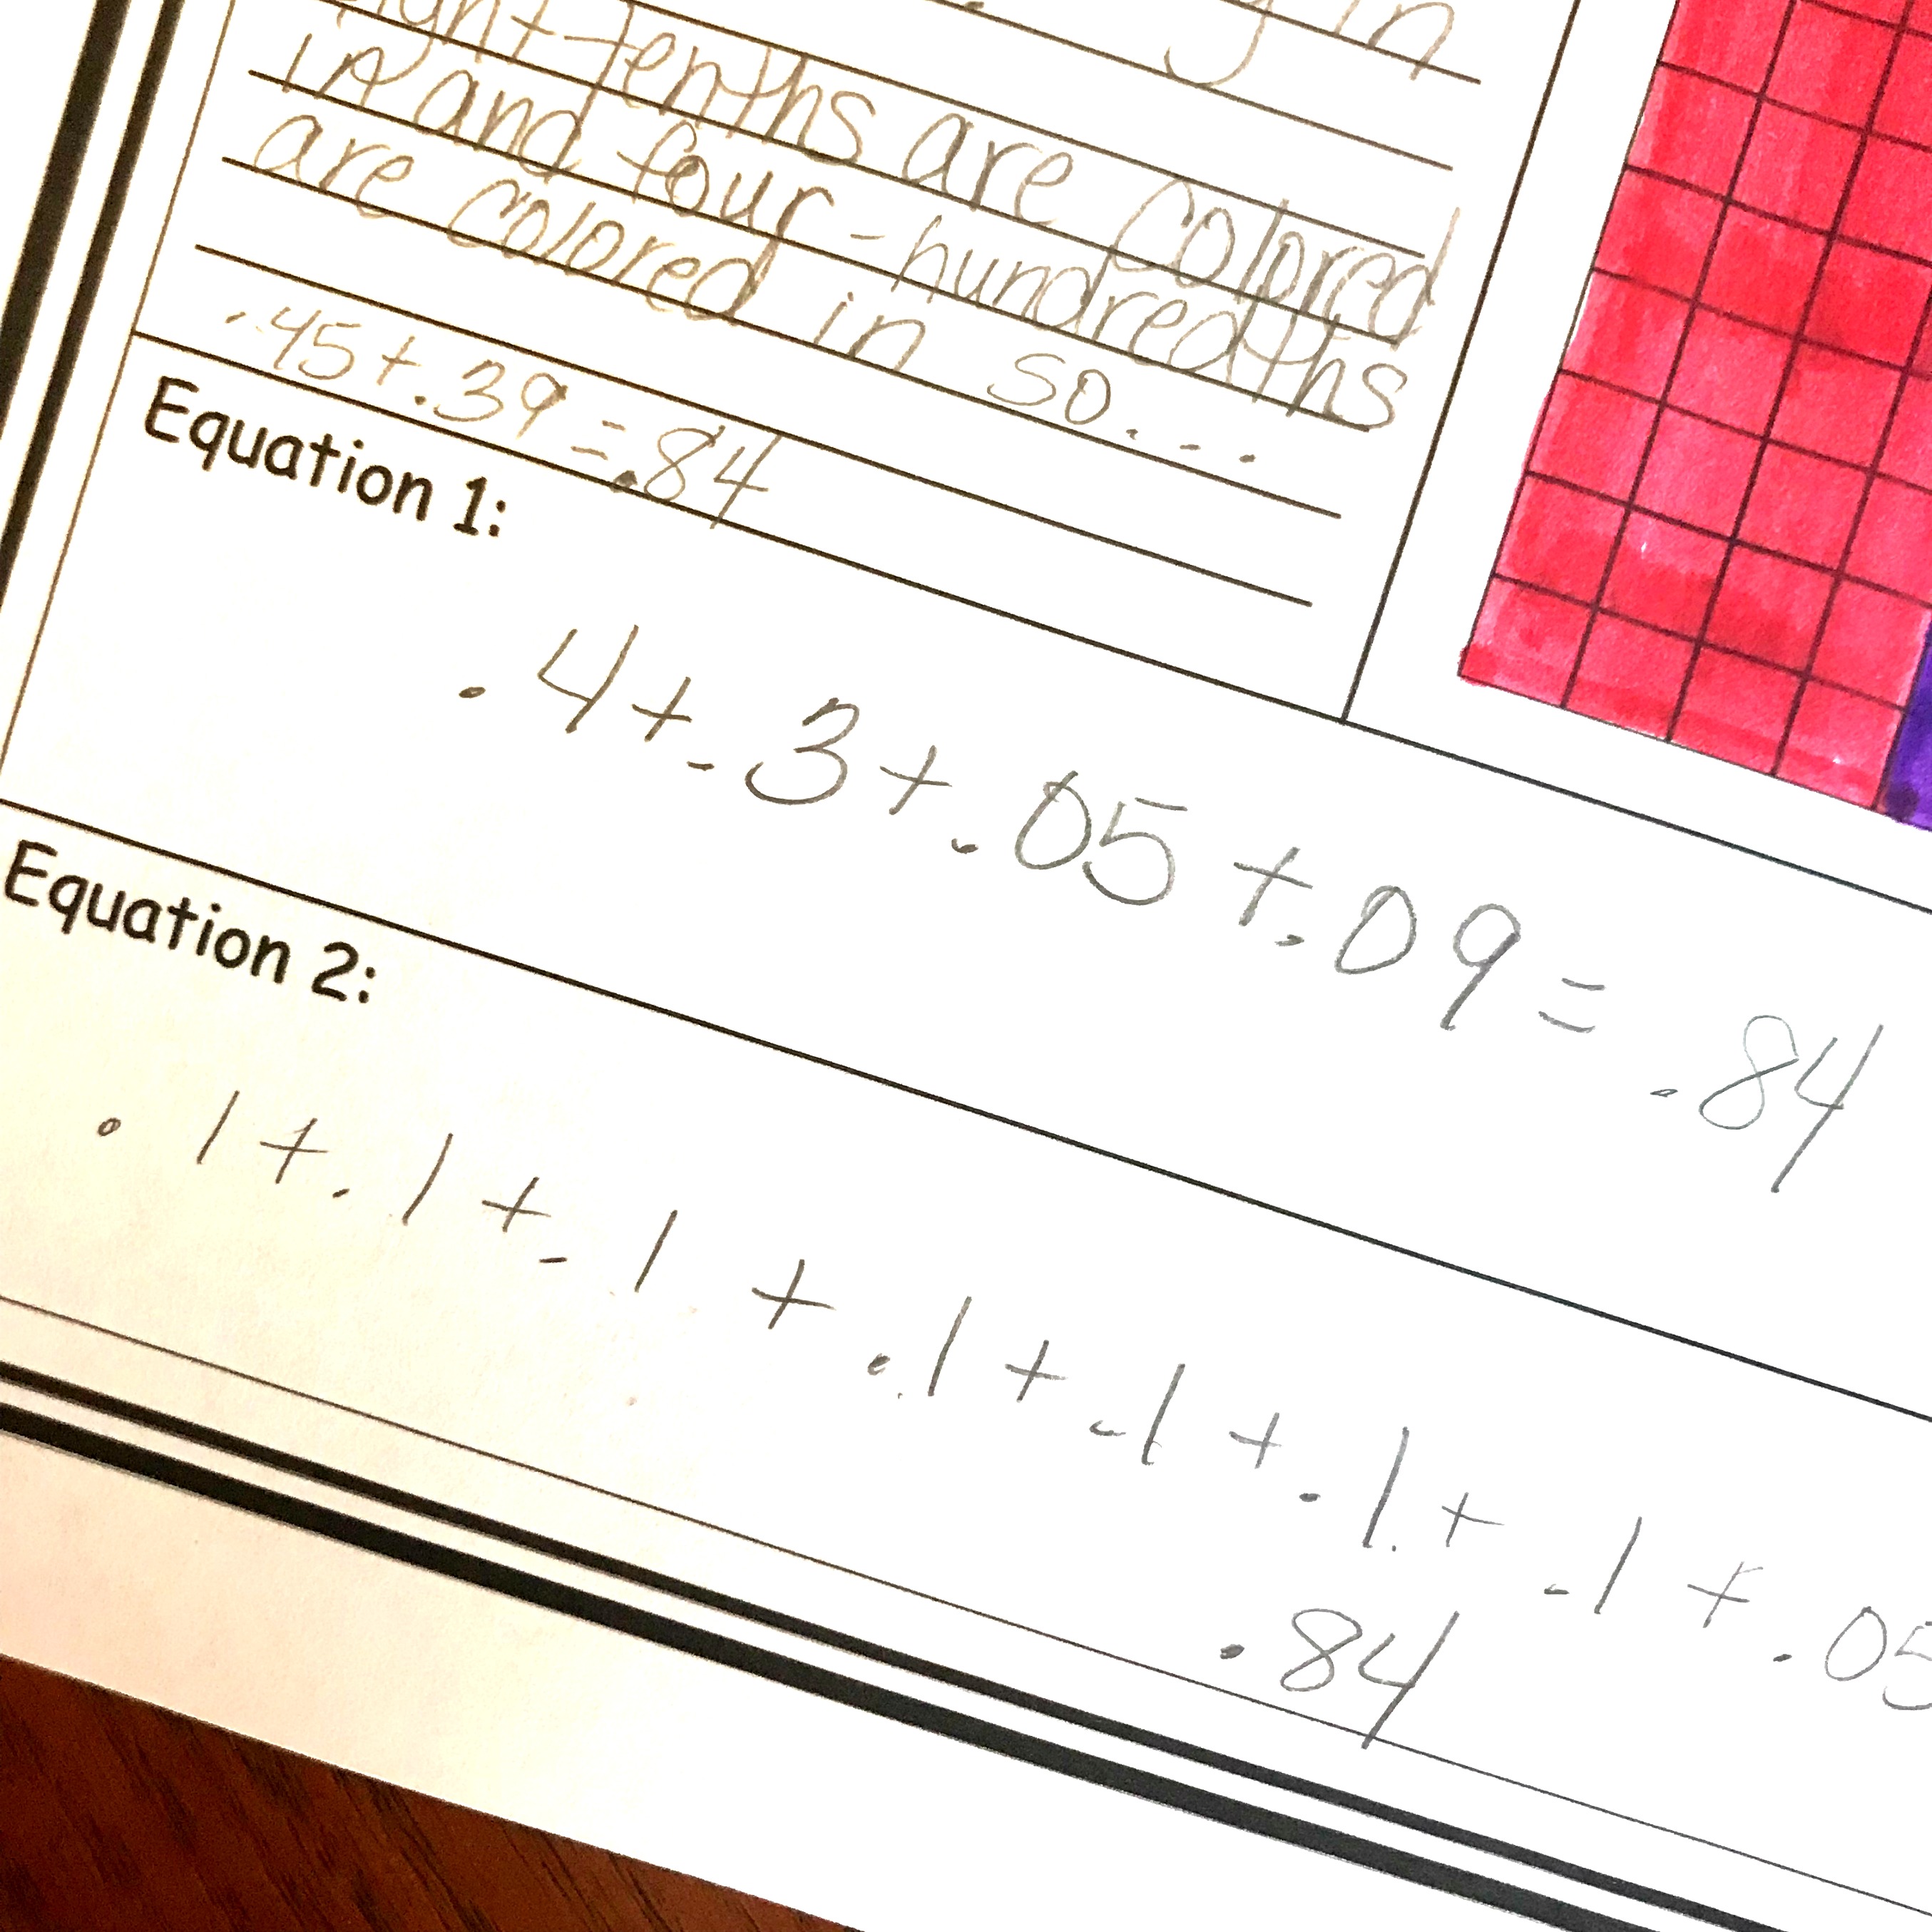 in
tenths are colored
in and four-hundredths
are colored in so...
.45+.39=.84
Equation 1:
.4+.3+.05+.09=.84
Equation 2:
.1+.1+.1+.1+.1+.1+.1+.05
.84